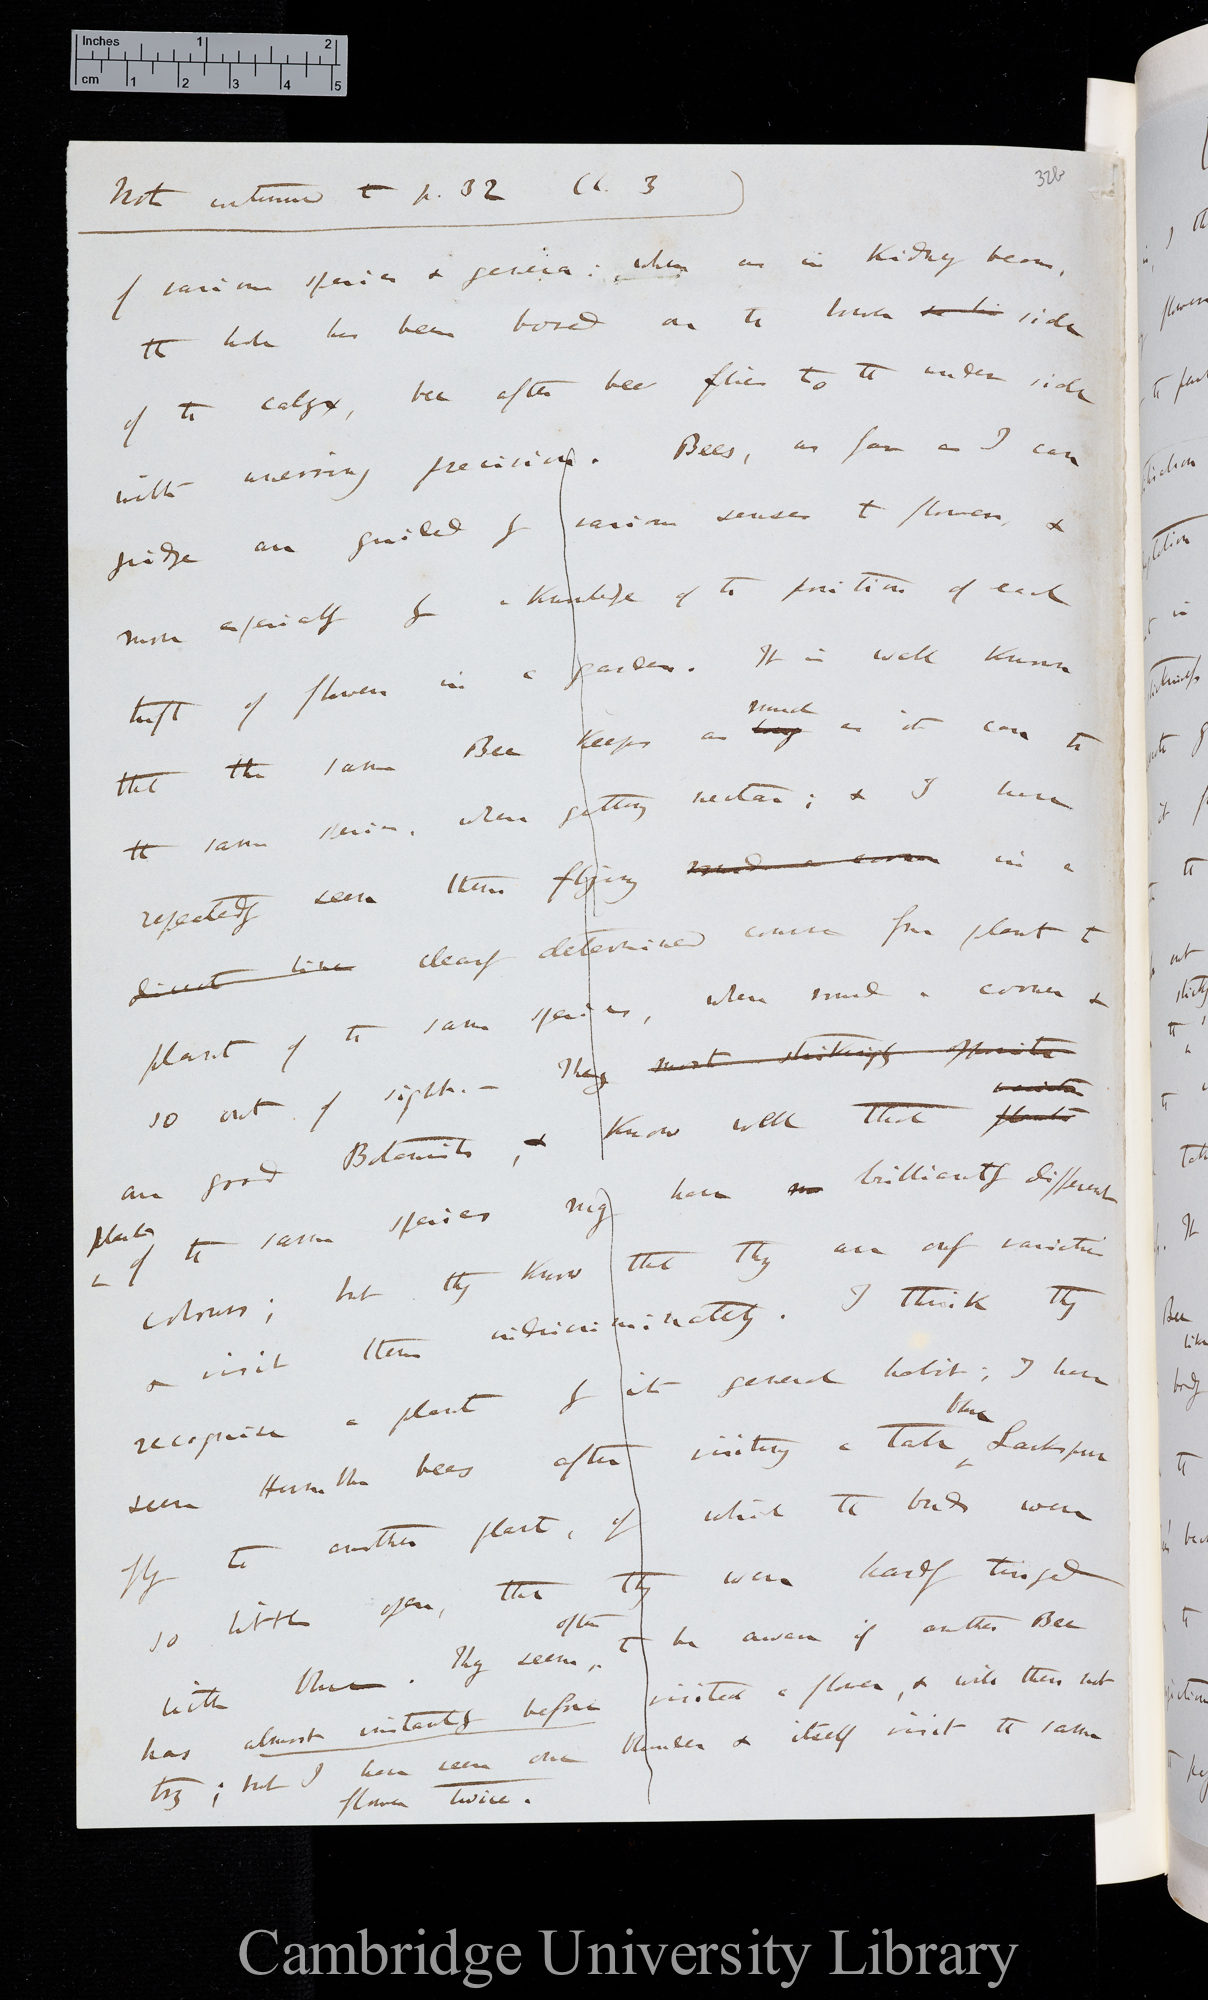 Inches 1 2
cm 1 2 3 4 5
32b
Note continued to p. 32 Ch. 3
of various species & genera: when as in Kidney bean,
the hole has been bored on the lower side
of the calyx, bee after bee flies to the under side
with unerring precision. Bees, as far as I can
judge are guided by various senses to flowers, &
more especially by a knowledge of the position of each
tuft of flowers in a garden. It is well known
that the same Bee keeps as long much as it can to
the same species, when getting nectar; & I have
repeatedly seen them flying round a corner in a
direct line clearly determined course from plant to
plant of the same species, when round a corner &
so out of sight.— They most strikingly
are good Botanists, & know well that plants varieties
plants of the same species may have brilliantly different
colours; but they know that they are only varieties
& visit them indiscriminately. I think they
recognise a plant by its general habit; I have
seen Humble bees after visiting a tall blue Larkspur
fly to another plant, of which the buds were
so little open, that they were hardly tinged
with blue. They seem often to be aware if another Bee
has almost instantly before visited a flower, & will then not
try; but I have seen one blunder & itself visit the same
flower twice.
Cambridge University Library